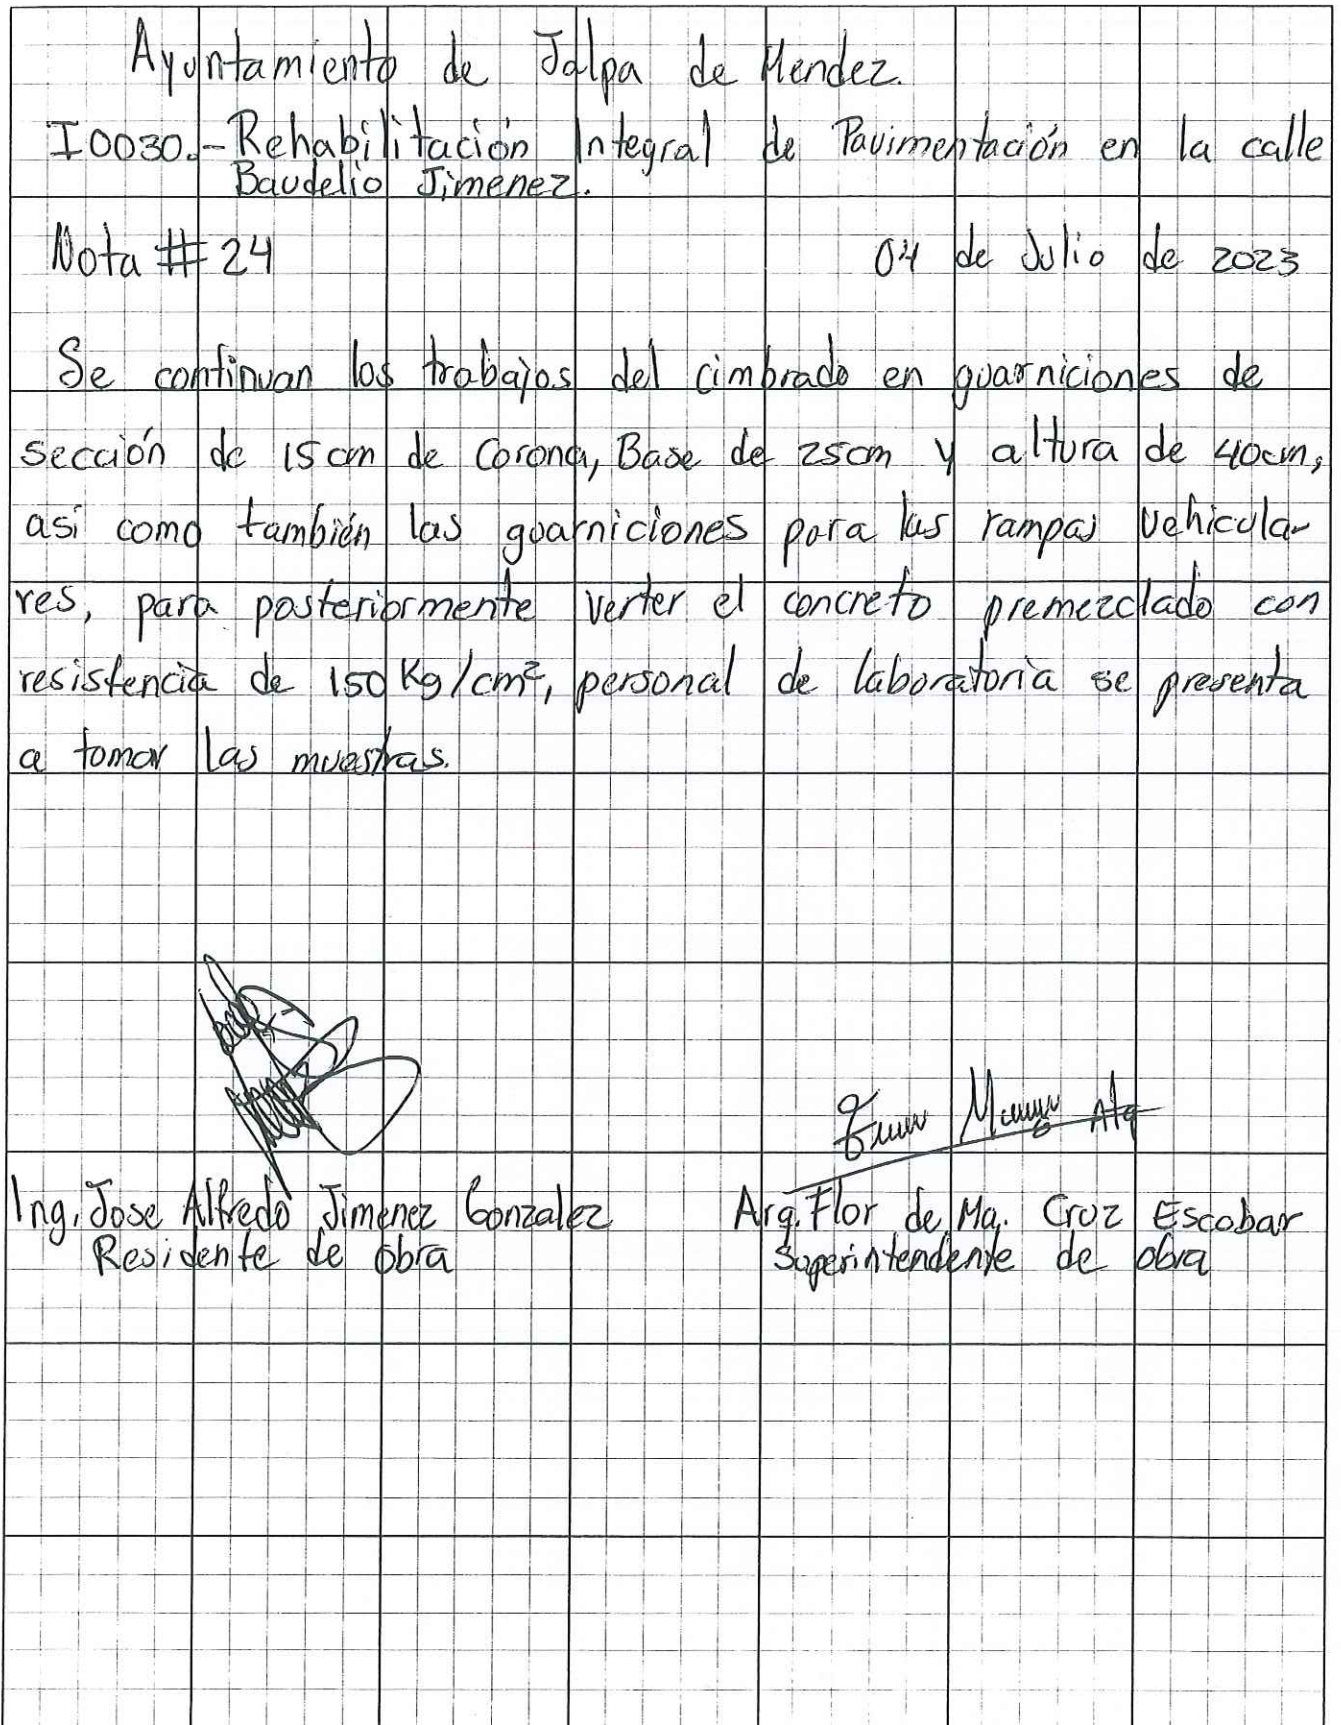 Ayuntamiento de Jalpa de Mendez.
I0030.- Rehabilitación Integral de Pavimentación en la calle
Baudelio Jimenez.
Nota # 24 04 de Julio de 2023
Se continuan los trabajos del cimbrado en guarniciones de
sección de 15 cm de Corona, Base de 25cm y altura de 40cm,
así como también las guarniciones para las rampas vehicula-
res, para posteriormente verter el concreto premezclado con
resistencia de 150 Kg/cm², personal de laboratoria se presenta
a tomar las muestras.
Ing. Jose Alfredo Jimenez Gonzalez Arq. Flor de Ma. Cruz Escobar
Residente de obra Superintendente de obra